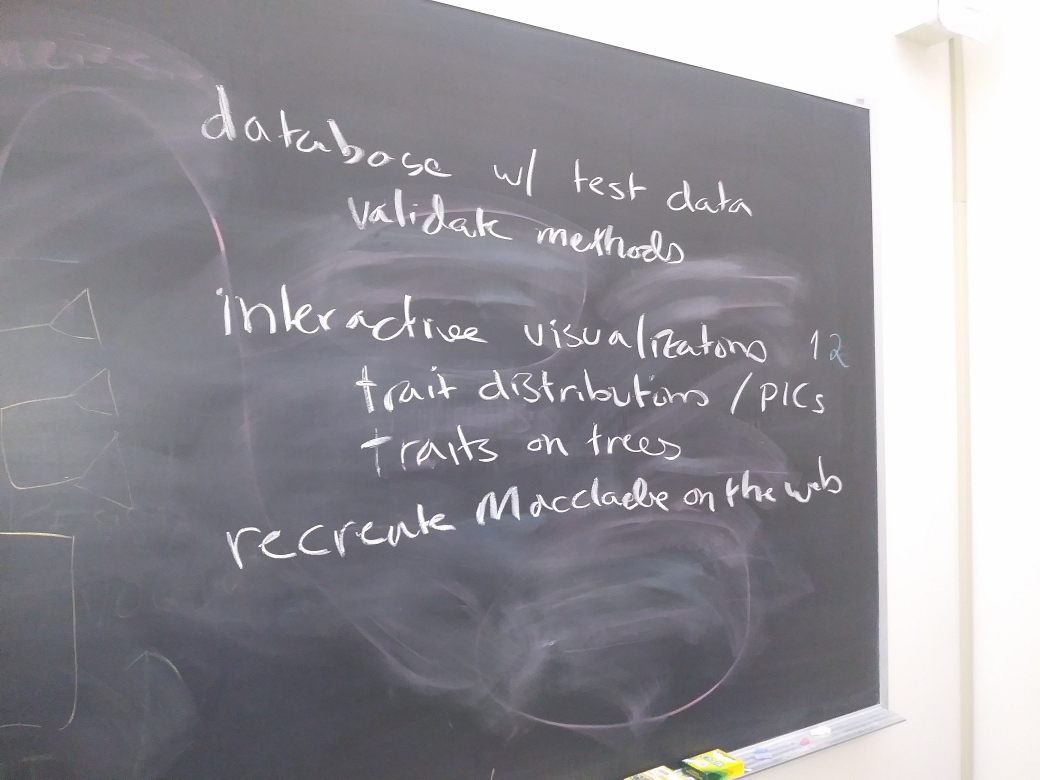 database w/ test data
validate methods
interactive visualizations 12
trait distributions / PICs
traits on trees
recreate Macclade on the web